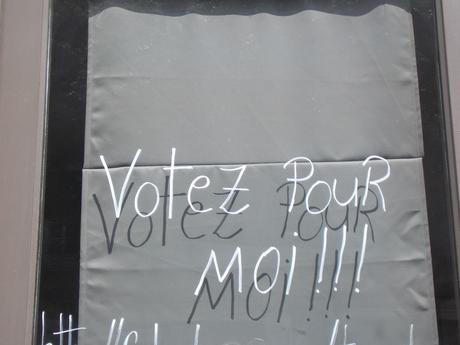 Votez POUR
MOi !!!